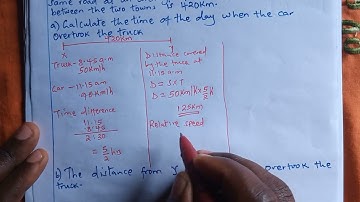 same road at an
between the two towns is 420km.
a) Calculate the time of the day when the car
overtook the truck
420km
X
Truck - 8:45 a.m
50km/h
Car - 11:15 am
Time difference
11:15
8:45
2:30
= 5/2 hrs
Distance covered
by the truck at
11:15 a.m
D = S x T
D = 50km/h x 5/2 h
125km
Relative speed
b) The distance from
overtook the
truck.